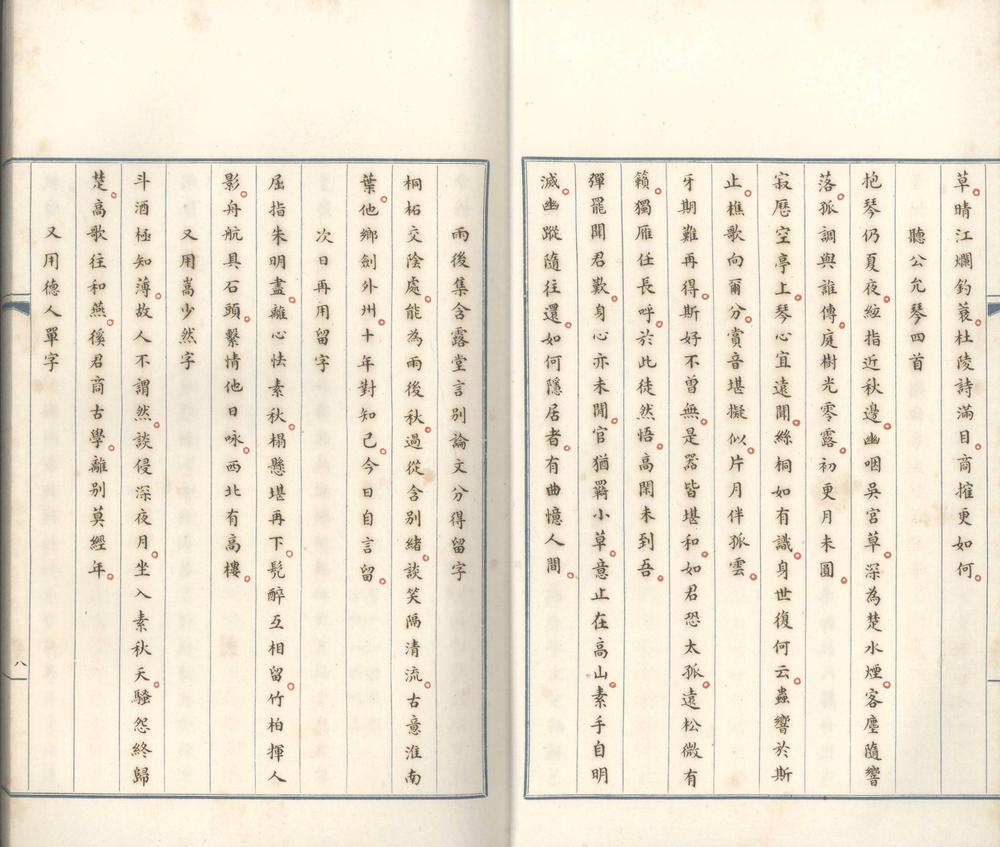 草晴江爛釣蓑杜陵詩滿目商搉更如何
聽公允琴四首
抱琴仍夏夜絃指近秋邊幽咽吳宮草深為楚水煙客塵隨響
落孤調與誰傳庭樹光零露初更月未圓
寂歷空亭上琴心宜遠聞絲桐如有識身世復何云蟲響於斯
止樵歌向爾分賞音堪擬似片月伴孤雲
牙期難再得斯好不曾無是器皆堪和如君恐太孤遠松微有
籟獨雁任長呼於此徒然悟高閑未到吾
彈罷聞君歎身心亦未閒官猶羇小草意止在高山素手自明
滅幽蹤隨往還如何隱居者有曲憶人間
雨後集含露堂言別論文分得留字
桐柘交陰處能為雨後秋過從含別緒談笑隔清流古意淮南
葉他鄉劍外州十年對知己今日自言留
次日再用留字
屈指朱明盡離心怯素秋榻懸堪再下髡醉互相留竹柏揮人
影舟航具石頭繫情他日咏西北有高樓
又用嵩少然字
斗酒極知薄故人不謂然談侵深夜月坐入素秋天騷怨終歸
楚高歌往和燕徯君商古學離別莫經年
又用德人單字
八